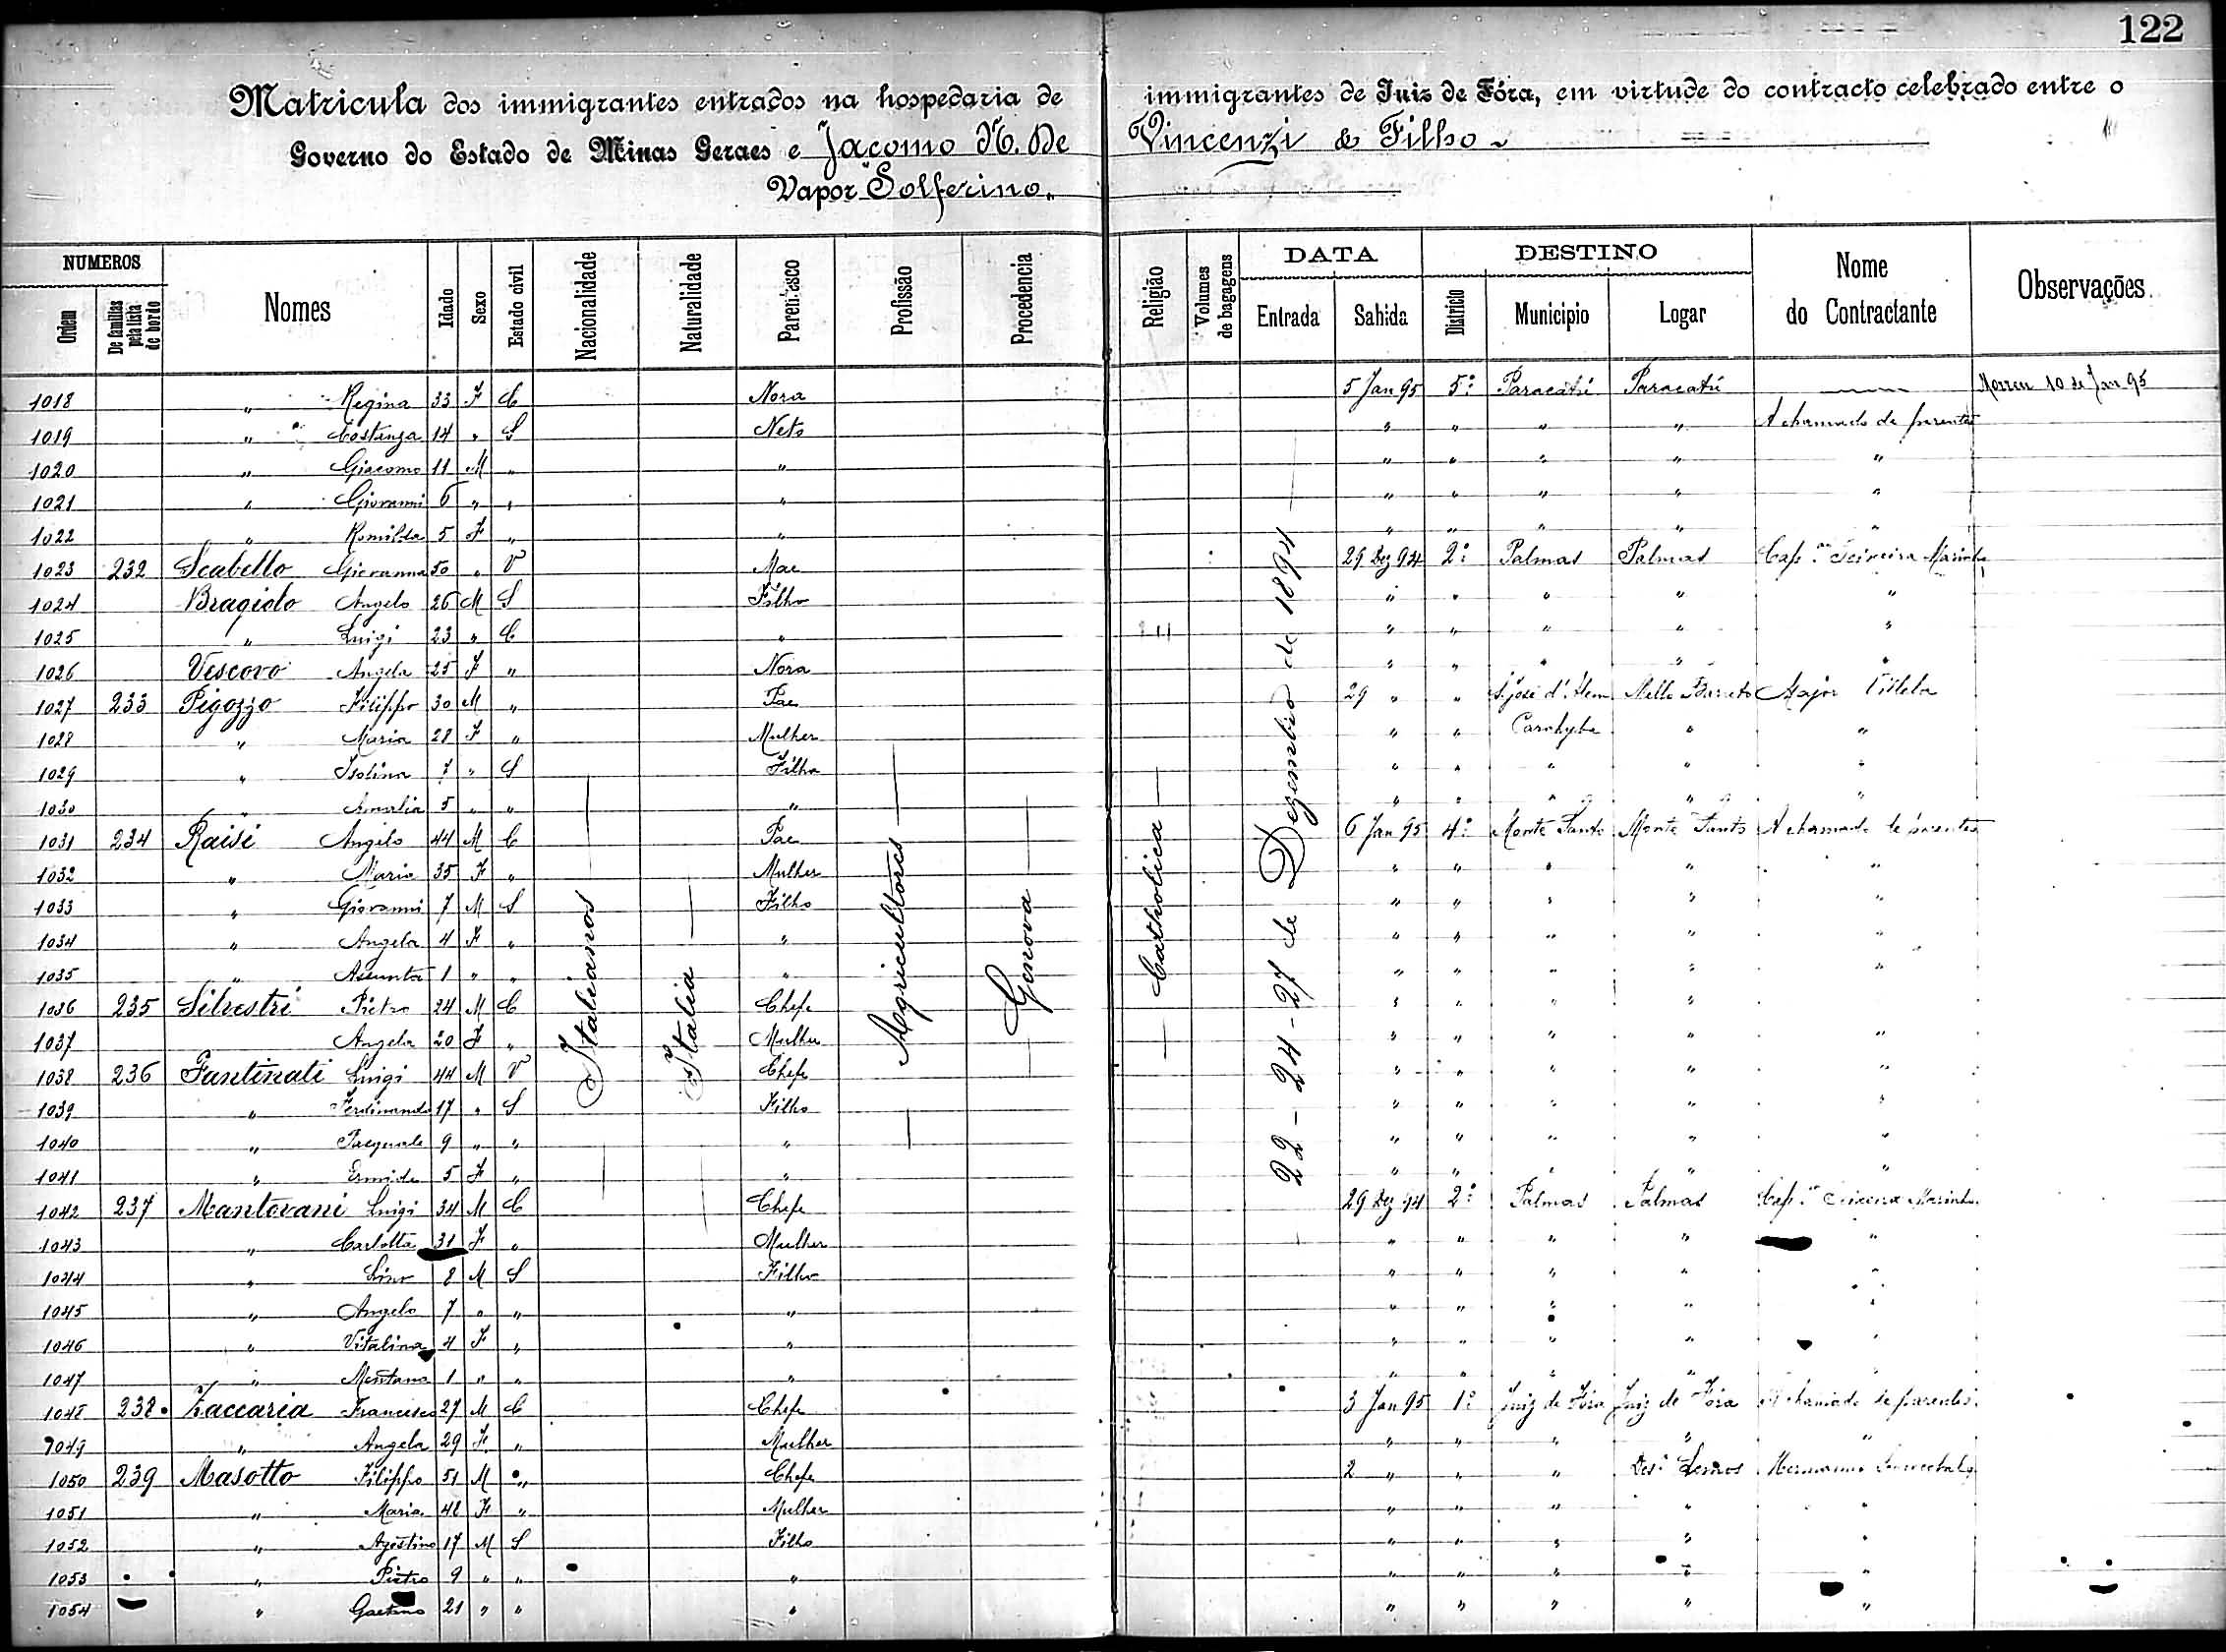 122
Matricula dos immigrantes entrados na hospedaria de immigrantes de Juiz de Fóra, em virtude do contracto celebrado entre o
Governo do Estado de Minas Geraes e Jacomo N. De Vincenzi & Filho
Vapor Solferino.
NUMEROS DATA DESTINO
Ordem De familias pela lista de bordo Nomes Idade Sexo Estado civil Nacionalidade Naturalidade Parentesco Profissão Procedencia Religião Volumes de bagagens Entrada Sahida Districto Municipio Logar Nome do Contractante Observações
Italianos
Italia
Agricultores
Genova
Catholica
22-24-27 de Dezembro de 1894
1018 " Regina 33 F C Nora 5 Jan 95 5º Paracatú Paracatú Morreu 10 de Jan 95
1019 " Costanza 14 " S Neto " " " " A chamado de parentes
1020 " Giacomo 11 M " " " " " " "
1021 " Giovanni 6 " " " " " " " "
1022 " Romilda 5 F " " " " " " "
1023 232 Scabello Giovanna 50 " V Mae 29 Dez 94 2º Palmas Palmas Capm Teixeira Marinho
1024 Bragiolo Angelo 26 M S Filho " " " " "
1025 " Luigi 23 " C " " " " " "
1026 Vescovo Angela 25 F " Nora " " " " "
1027 233 Pigozzo Filippo 30 M " Pae 29 " " S. José d'Alem Mello Barreto Major Villela
1028 " Maria 28 F " Mulher " " Parahyba " "
1029 " Isolina 7 " S Filha " " " " "
1030 " Amalia 5 " " " " " " " "
1031 234 Raisi Angelo 44 M C Pae 6 Jan 95 4º Monte Santo Monte Santo A chamado de parentes
1032 " Maria 35 F " Mulher " " " " "
1033 " Giovanni 7 M S Filho " " " " "
1034 " Angela 4 F " " " " " " "
1035 " Assunta 1 " " " " " " " "
1036 235 Silvestri Pietro 24 M C Chefe " " " " "
1037 Angela 20 F " Mulher " " " " "
1038 236 Fantinati Luigi 44 M V Chefe " " " " "
1039 " Ferdinando 17 " S Filho " " " " "
1040 " Pasquale 9 " " " " " " " "
1041 " Ermida 5 F " " " " " " "
1042 237 Mantovani Luigi 34 M C Chefe 29 Dez 94 2º Palmas Palmas Capm Teixeira Marinho
1043 " Carlotta 31 F " Mulher " " " " "
1044 " Lino 8 M S Filho " " " " "
1045 " Angelo 7 " " " " " " " "
1046 " Vitalina 4 F " " " " " " "
1047 " Mentana 1 " " " " " " " "
1048 238 Zaccaria Francesco 27 M C Chefe 3 Jan 95 1º Juiz de Fóra Juiz de Fóra A chamado de parentes
1049 " Angela 29 F " Mulher " " " " "
1050 239 Masotto Filippo 51 M " Chefe 2 " " " Desr Lemos
1051 " Maria 48 F " Mulher " " " " "
1052 " Agostino 17 M S Filho " " " " "
1053 " Pietro 9 " " " " " " " "
1054 " Gaetano 21 " " " " " " " "